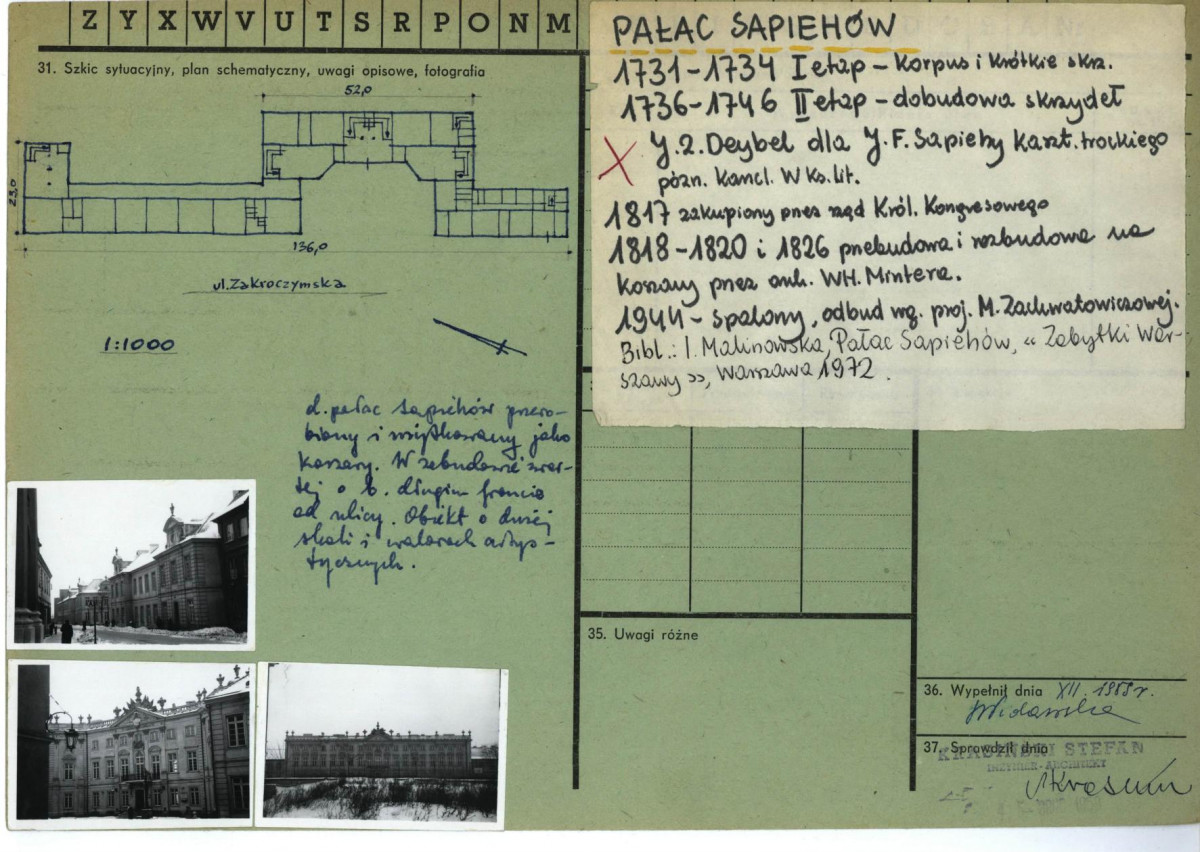 Z Y X W V U T S R P O N M
31. Szkic sytuacyjny, plan schematyczny, uwagi opisowe, fotografia
52,0
23,0
136,0
ul. Zakroczymska
1:1000
d. pałac Sapiehów przero-
biony i użytkowany jako
koszary. W zabudowie zwar-
tej o b. długim froncie
od ulicy. Obiekt o dużej
skali i walorach artys-
tycznych.
PAŁAC SAPIEHÓW
1731-1734 I etap - Korpus i krótkie skrz.
1736-1746 II etap - dobudowa skrzydeł
X J.Z. Deybel dla J.F. Sapiehy kaszt. trockiego
późn. Kancl. W Ks. lit.
1817 zakupiony przez rząd Król. Kongresowego
1818-1820 i 1826 przebudowa i rozbudowa na
koszary przez arch. WH. Mintera.
1944 - spalony, odbud wg. proj. M. Zachwatowiczowej.
Bibl.: I. Malinowska, Pałac Sapiehów, « Zabytki War-
szawy », Warszawa 1972.
35. Uwagi różne
36. Wypełnił dnia XII. 1959 r.
37. Sprawdził dnia
KRASIŃSKI STEFAN
INŻYNIER-ARCHITEKT